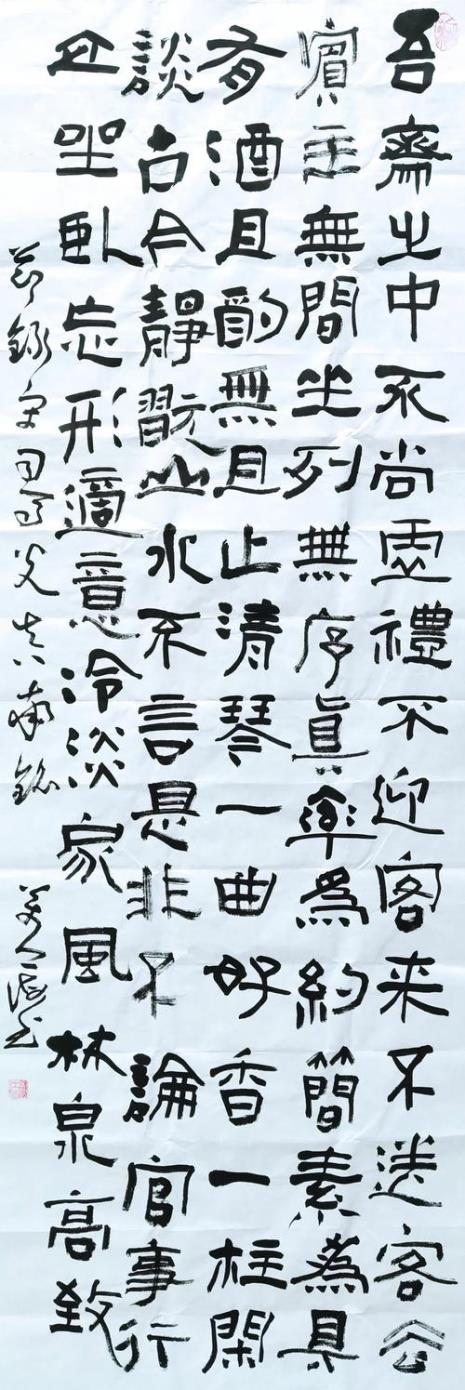 吾齋之中不尚虛禮不迎客来不送客去
賓主無間坐列無序真率爲約簡素爲具
有酒且酌無且止清琴一曲好香一柱閑
談古今靜翫山水不言是非不論官事行
立坐臥忘形適意冷淡家風林泉高致
節録宋司馬光真率銘